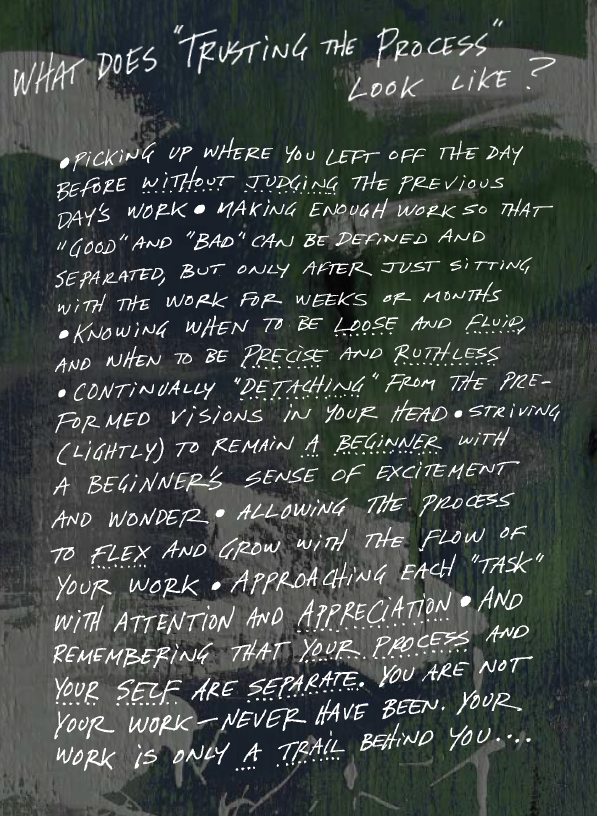 WHAT DOES "TRUSTING THE PROCESS"
LOOK LIKE?
• PICKING UP WHERE YOU LEFT OFF THE DAY
BEFORE WITHOUT JUDGING THE PREVIOUS
DAY'S WORK • MAKING ENOUGH WORK SO THAT
"GOOD" AND "BAD" CAN BE DEFINED AND
SEPARATED, BUT ONLY AFTER JUST SITTING
WITH THE WORK FOR WEEKS OR MONTHS
• KNOWING WHEN TO BE LOOSE AND FLUID,
AND WHEN TO BE PRECISE AND RUTHLESS
• CONTINUALLY "DETACHING" FROM THE PRE-
FORMED VISIONS IN YOUR HEAD • STRIVING
(LIGHTLY) TO REMAIN A BEGINNER WITH
A BEGINNER'S SENSE OF EXCITEMENT
AND WONDER • ALLOWING THE PROCESS
TO FLEX AND GROW WITH THE FLOW OF
YOUR WORK • APPROACHING EACH "TASK"
WITH ATTENTION AND APPRECIATION • AND
REMEMBERING THAT YOUR PROCESS AND
YOUR SELF ARE SEPARATE. YOU ARE NOT
YOUR WORK — NEVER HAVE BEEN. YOUR
WORK IS ONLY A TRAIL BEHIND YOU....